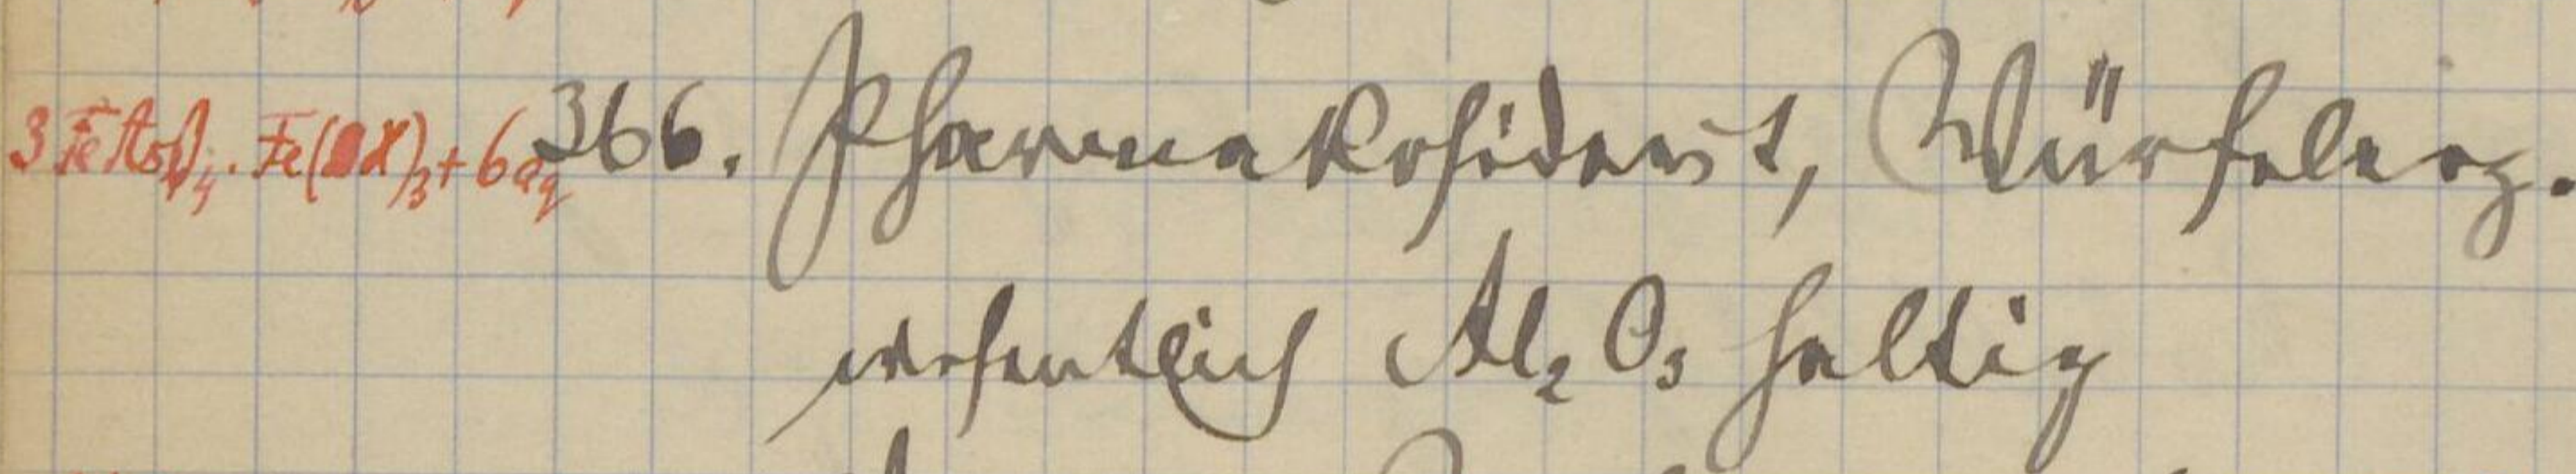 3 FeAsO₄. Fe(OH)₃ + 6 aq 366. Pharmakosiderit, Würfelerz.
wesentlich Al₂O₃ haltig